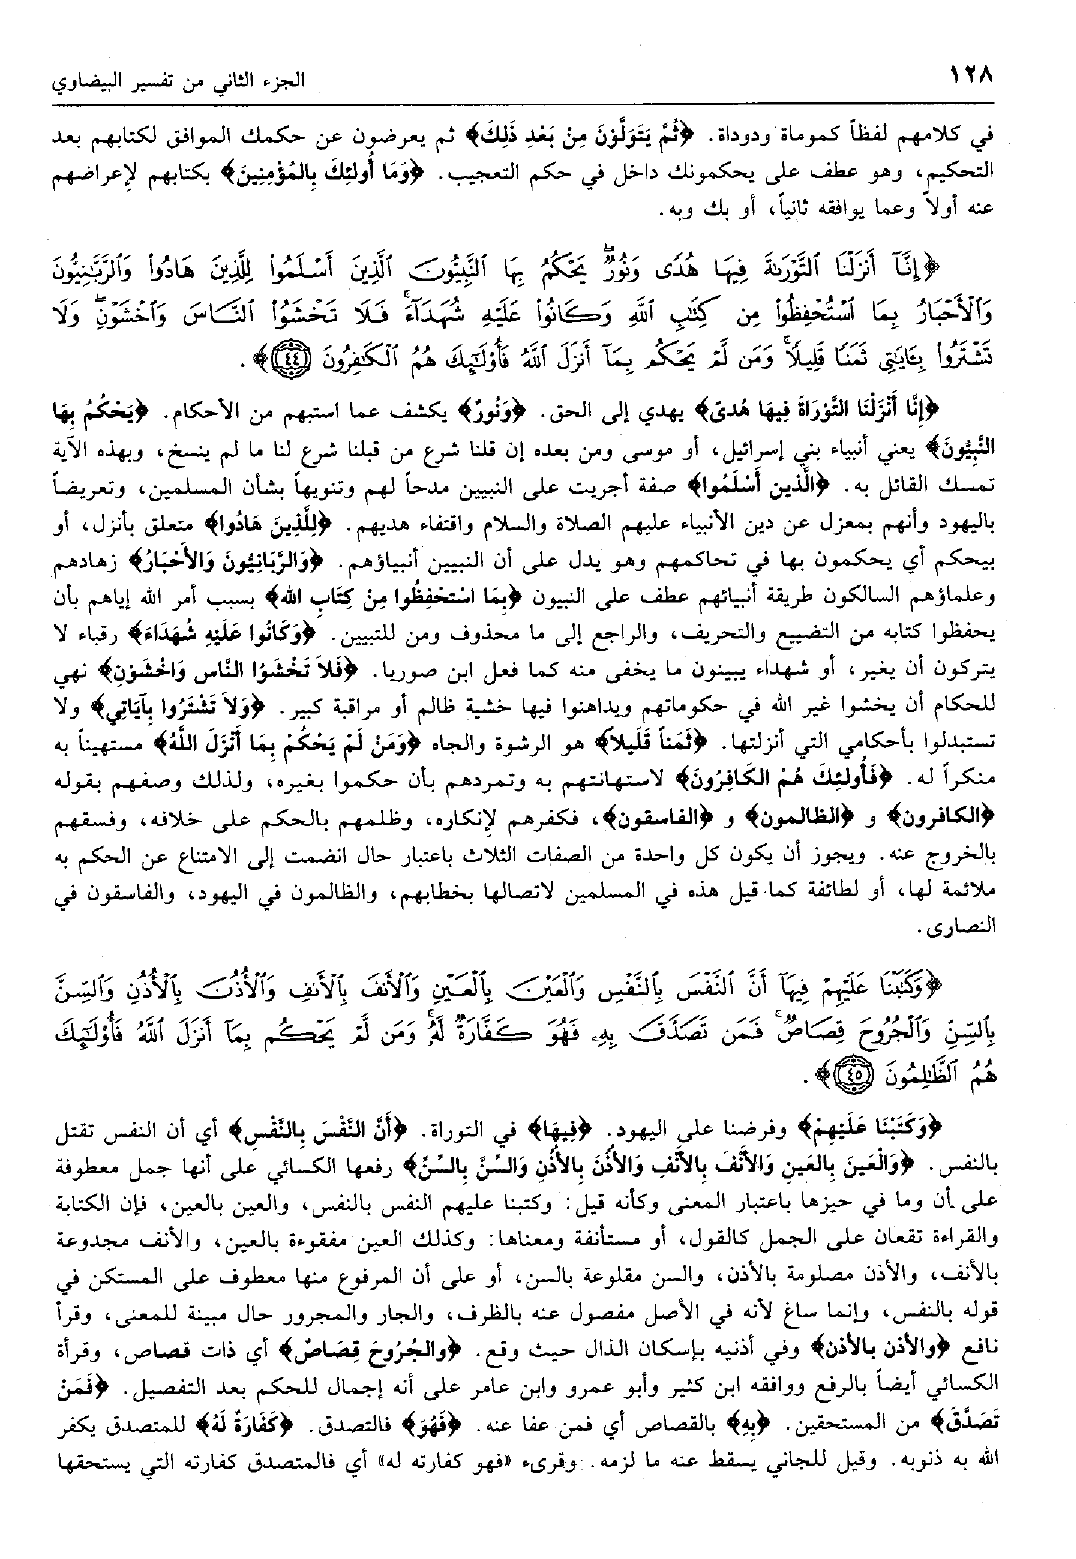 ١٢٨
الجزء الثاني من تفسير البيضاوي
في كلامهم لفظاً كموماة ودوداة. ﴿ثُمَّ يَتَوَلَّوْنَ مِنْ بَعْدِ ذَلِكَ﴾ ثم يعرضون عن حكمك الموافق لكتابهم بعد
التحكيم، وهو عطف على يحكمونك داخل في حكم التعجيب. ﴿وَمَا أُولئِكَ بِالمُؤْمِنِينَ﴾ بكتابهم لإعراضهم
عنه أولاً وعما يوافقه ثانياً، أو بك وبه.
﴿إِنَّآ أَنزَلْنَا ٱلتَّوْرَىٰةَ فِيهَا هُدًى وَنُورٌۚ يَحْكُمُ بِهَا ٱلنَّبِيُّونَ ٱلَّذِينَ أَسْلَمُوا۟ لِلَّذِينَ هَادُوا۟ وَٱلرَّبَّـٰنِيُّونَ
وَٱلْأَحْبَارُ بِمَا ٱسْتُحْفِظُوا۟ مِن كِتَـٰبِ ٱللَّهِ وَكَانُوا۟ عَلَيْهِ شُهَدَآءَۚ فَلَا تَخْشَوُا۟ ٱلنَّاسَ وَٱخْشَوْنِۖ وَلَا
تَشْتَرُوا۟ بِـَٔايَـٰتِى ثَمَنًا قَلِيلًاۚ وَمَن لَّمْ يَحْكُم بِمَآ أَنزَلَ ٱللَّهُ فَأُو۟لَـٰٓئِكَ هُمُ ٱلْكَـٰفِرُونَ ﴿٤٤﴾﴾.
﴿إِنَّا أَنْزَلْنَا التَّوْرَاةَ فِيهَا هُدىً﴾ يهدي إلى الحق. ﴿وَنُورٌ﴾ يكشف عما استبهم من الأحكام. ﴿يَحْكُمُ بِهَا
النَّبِيُّونَ﴾ يعني أنبياء بني إسرائيل، أو موسى ومن بعده إن قلنا شرع من قبلنا شرع لنا ما لم ينسخ، وبهذه الآية
تمسك القائل به. ﴿الَّذِينَ أَسْلَمُوا﴾ صفة أجريت على النبيين مدحاً لهم وتنويهاً بشأن المسلمين، وتعريضاً
باليهود وأنهم بمعزل عن دين الأنبياء عليهم الصلاة والسلام واقتفاء هديهم. ﴿لِلَّذِينَ هَادُوا﴾ متعلق بأنزل، أو
بيحكم أي يحكمون بها في تحاكمهم وهو يدل على أن النبيين أنبياؤهم. ﴿وَالرَّبَّانِيُّونَ وَالأَحْبَارُ﴾ زهادهم
وعلماؤهم السالكون طريقة أنبيائهم عطف على النبيون ﴿بِمَا اسْتُحْفِظُوا مِنْ كِتَابِ اللهِ﴾ بسبب أمر الله إياهم بأن
يحفظوا كتابه من التضييع والتحريف، والراجع إلى ما محذوف ومن للتبيين. ﴿وَكَانُوا عَلَيْهِ شُهَدَاءَ﴾ رقباء لا
يتركون أن يغير، أو شهداء يبينون ما يخفى منه كما فعل ابن صوريا. ﴿فَلاَ تَخْشَوُا النَّاس وَاخْشَوْنِ﴾ نهي
للحكام أن يخشوا غير الله في حكوماتهم ويداهنوا فيها خشية ظالم أو مراقبة كبير. ﴿وَلاَ تَشْتَرُوا بِآيَاتِي﴾ ولا
تستبدلوا بأحكامي التي أنزلتها. ﴿ثَمَناً قَلِيلاً﴾ هو الرشوة والجاه ﴿وَمَنْ لَمْ يَحْكُمْ بِمَا أَنْزَلَ اللَّهُ﴾ مستهيناً به
منكراً له. ﴿فَأُولئِكَ هُمُ الكَافِرُونَ﴾ لاستهانتهم به وتمردهم بأن حكموا بغيره، ولذلك وصفهم بقوله
﴿الكافرون﴾ و ﴿الظالمون﴾ و ﴿الفاسقون﴾، فكفرهم لإنكاره، وظلمهم بالحكم على خلافه، وفسقهم
بالخروج عنه. ويجوز أن يكون كل واحدة من الصفات الثلاث باعتبار حال انضمت إلى الامتناع عن الحكم به
ملائمة لها، أو لطائفة كما قيل هذه في المسلمين لاتصالها بخطابهم، والظالمون في اليهود، والفاسقون في
النصارى.
﴿وَكَتَبْنَا عَلَيْهِمْ فِيهَآ أَنَّ ٱلنَّفْسَ بِٱلنَّفْسِ وَٱلْعَيْنَ بِٱلْعَيْنِ وَٱلْأَنفَ بِٱلْأَنفِ وَٱلْأُذُنَ بِٱلْأُذُنِ وَٱلسِّنَّ
بِٱلسِّنِّ وَٱلْجُرُوحَ قِصَاصٌۚ فَمَن تَصَدَّقَ بِهِۦ فَهُوَ كَفَّارَةٌ لَّهُۥۚ وَمَن لَّمْ يَحْكُم بِمَآ أَنزَلَ ٱللَّهُ فَأُو۟لَـٰٓئِكَ
هُمُ ٱلظَّـٰلِمُونَ ﴿٤٥﴾﴾.
﴿وَكَتَبْنَا عَلَيْهِمْ﴾ وفرضنا على اليهود. ﴿فِيهَا﴾ في التوراة. ﴿أَنَّ النَّفْسَ بِالنَّفْسِ﴾ أي أن النفس تقتل
بالنفس. ﴿وَالْعَينَ بِالعَينِ وَالأَنْفَ بِالأَنْفِ وَالأُذُنَ بِالأُذُنِ وَالسِّنَّ بِالسِّنِّ﴾ رفعها الكسائي على أنها جمل معطوفة
على أن وما في حيزها باعتبار المعنى وكأنه قيل: وكتبنا عليهم النفس بالنفس، والعين بالعين، فإن الكتابة
والقراءة تقعان على الجمل كالقول، أو مستأنفة ومعناها: وكذلك العين مفقوءة بالعين، والأنف مجدوعة
بالأنف، والأذن مصلومة بالأذن، والسن مقلوعة بالسن، أو على أن المرفوع منها معطوف على المستكن في
قوله بالنفس، وإنما ساغ لأنه في الأصل مفصول عنه بالظرف، والجار والمجرور حال مبينة للمعنى، وقرأ
نافع ﴿والأذن بالأذن﴾ وفي أذنيه بإسكان الذال حيث وقع. ﴿والجُرُوحَ قِصَاصٌ﴾ أي ذات قصاص، وقرأة
الكسائي أيضاً بالرفع ووافقه ابن كثير وأبو عمرو وابن عامر على أنه إجمال للحكم بعد التفصيل. ﴿فَمَنْ
تَصَدَّقَ﴾ من المستحقين. ﴿بِهِ﴾ بالقصاص أي فمن عفا عنه. ﴿فَهُوَ﴾ فالتصدق. ﴿كَفَّارَةٌ لَهُ﴾ للمتصدق يكفر
الله به ذنوبه. وقيل للجاني يسقط عنه ما لزمه. وقرىء «فهو كفارته له» أي فالمتصدق كفارته التي يستحقها